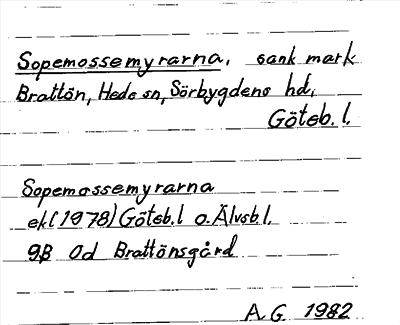 Sopemossemyrarna, sank mark
Brattön, Hede sn, Sörbygdens hd,
Göteb. l.
Sopemossemyrarna
ek (1978) Göteb.l o. Älvsb.l.
9B 0d Brattönsgård
A. G. 1982